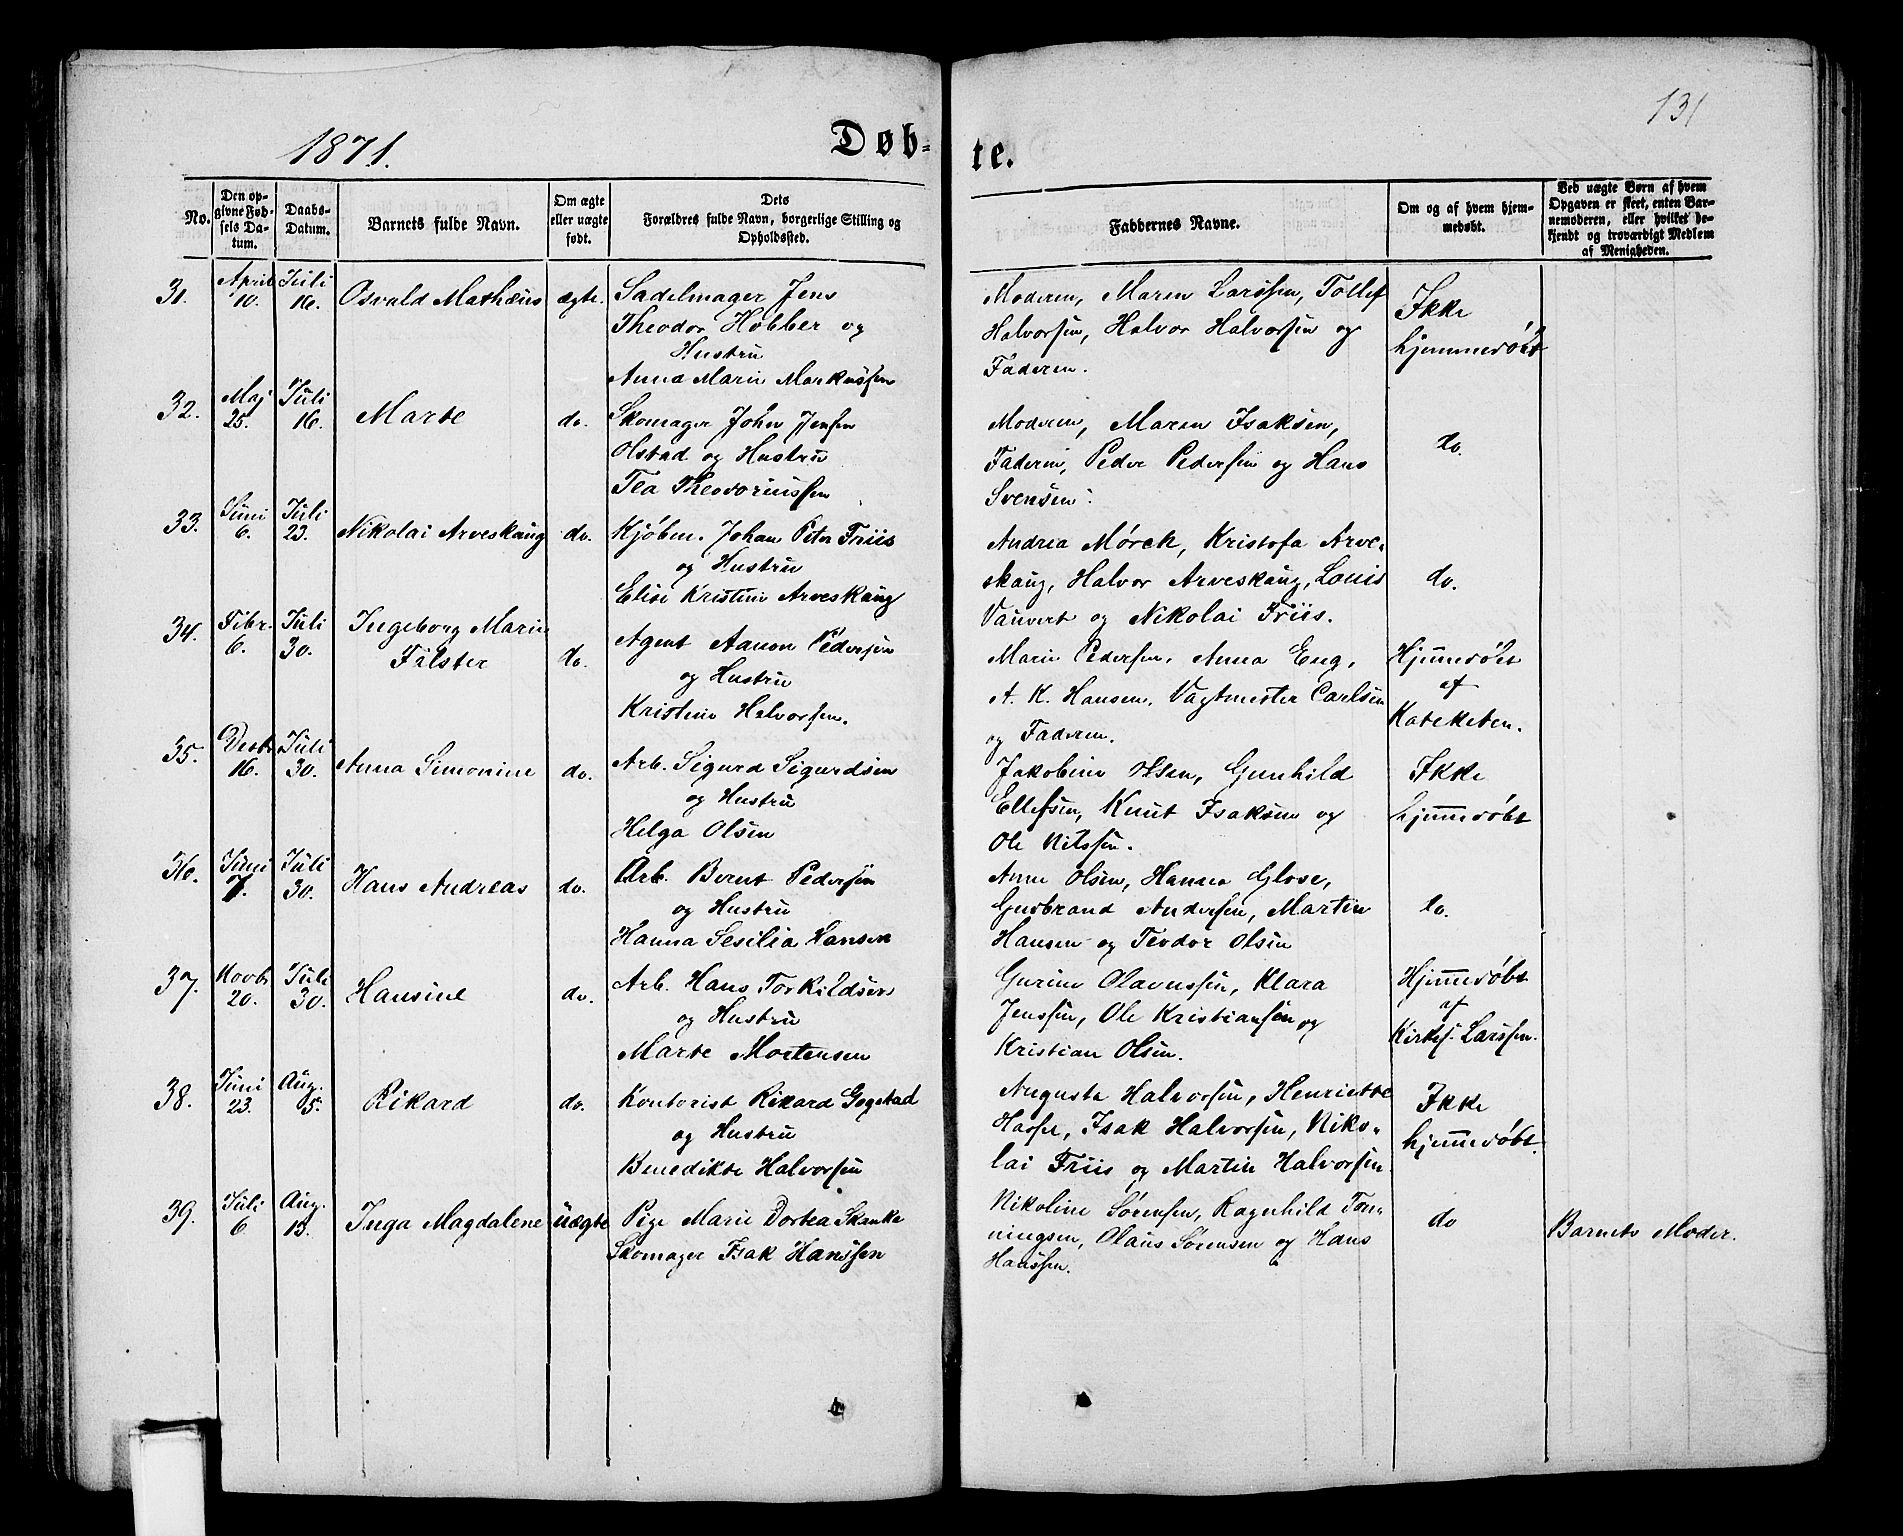 131
1871.
Døb-
te.
No.
Den op-
givne Fød-
sels Da-
tum.
Daabs-
Datum.
Barnets fulde Navn.
Om ægte
eller uægte
født.
Dets
Forældres fulde Navn, borgerlige Stilling og
Opholdssted.
Faddernes Navne.
Om og af hvem hjem-
medøbt.
Ved uægte Børn af hvem
Opgaven er skeet, enten Bar-
nemoderen, eller hvilket be-
kjendt og troværdigt Medlem
af Menigheden.
31.
April
10.
Juli
16.
Osvald Mathæus
ægte.
Sadelmager Jens
Theodor Hobber og
Hustru
Anna Marie Markussen
Moderen, Maren Larssen, Tollef
Halvorsen, Halvor Halvorsen og
Faderen.
Ikke
hjemmedøbt
32.
Maj
25.
Juli
16.
Marte
do.
Skomager John Jensen
Olstad og Hustru
Tea Theodoriussen
Moderen, Maren Isaksen,
Faderen, Peder Pedersen og Hans
Svensen.
do.
33.
Juni
6.
Juli
23.
Nikolai Arveskoug
do.
Kjøbm. Johan Peter Friis
og Hustru
Elise Kristine Arveskoug
Andrea Mørch, Kristofa Arve-
skoug, Halvor Arveskoug, Louis
Vauvert og Nikolai Friis.
do.
34.
Febr.
6.
Juli
30.
Ingeborg Marie
Falster
do.
Agent Aanon Pedersen
og Hustru
Kristine Halvorsen.
Marie Pedersen, Anna Eng,
A. K. Hansen, Vagtmester Carlsen
og Faderen.
Hjemmedøbt
af
Kateketen.
35.
Decbr
16.
Juli
30.
Anna Simonine
do.
Arb. Sigurd Sigurdsen
og Hustru
Helga Olsen
Jakobine Olsen, Gunhild
Ellefsen, Knut Isaksen og
Ole Nilssen.
Ikke
hjemmedøbt
36.
Juni
7.
Juli
30.
Hans Andreas
do.
Arb. Bernt Pedersen
og Hustru
Hanna Sesilia Hansen
Anne Olsen, Hanna Glose,
Gudbrand Andersen, Martin
Hansen og Teodor Olsen
do.
37.
Novbr
20.
Juli
30.
Hansine
do.
Arb. Hans Torkildsen
og Hustru
Marte Mortensen
Gurine Olavussen, Klara
Jenssen, Ole Kristiansen og
Kristian Olsen.
Hjemmedøbt
af
Kirkes. Larssen.
38.
Juni
23.
Aug.
5.
Rikard
do.
Kontorist Rikard Gogstad
og Hustru
Benedikte Halvorsen
Augusta Halvorsen, Henriette
Isak Halvorsen, Niko-
lai Friis og Martin Halvorsen.
Ikke
hjemmedøbt.
39.
Juli
6.
Aug.
13.
Inga Magdalene
uægte
Pige Marie Dortea Skanke
Skomager Isak Hanssen
Nikoline Sørensen, Ragnhild Tøn-
ningsen, Olaus Sørensen og Hans
Hanssen.
do
Barnets Moder.